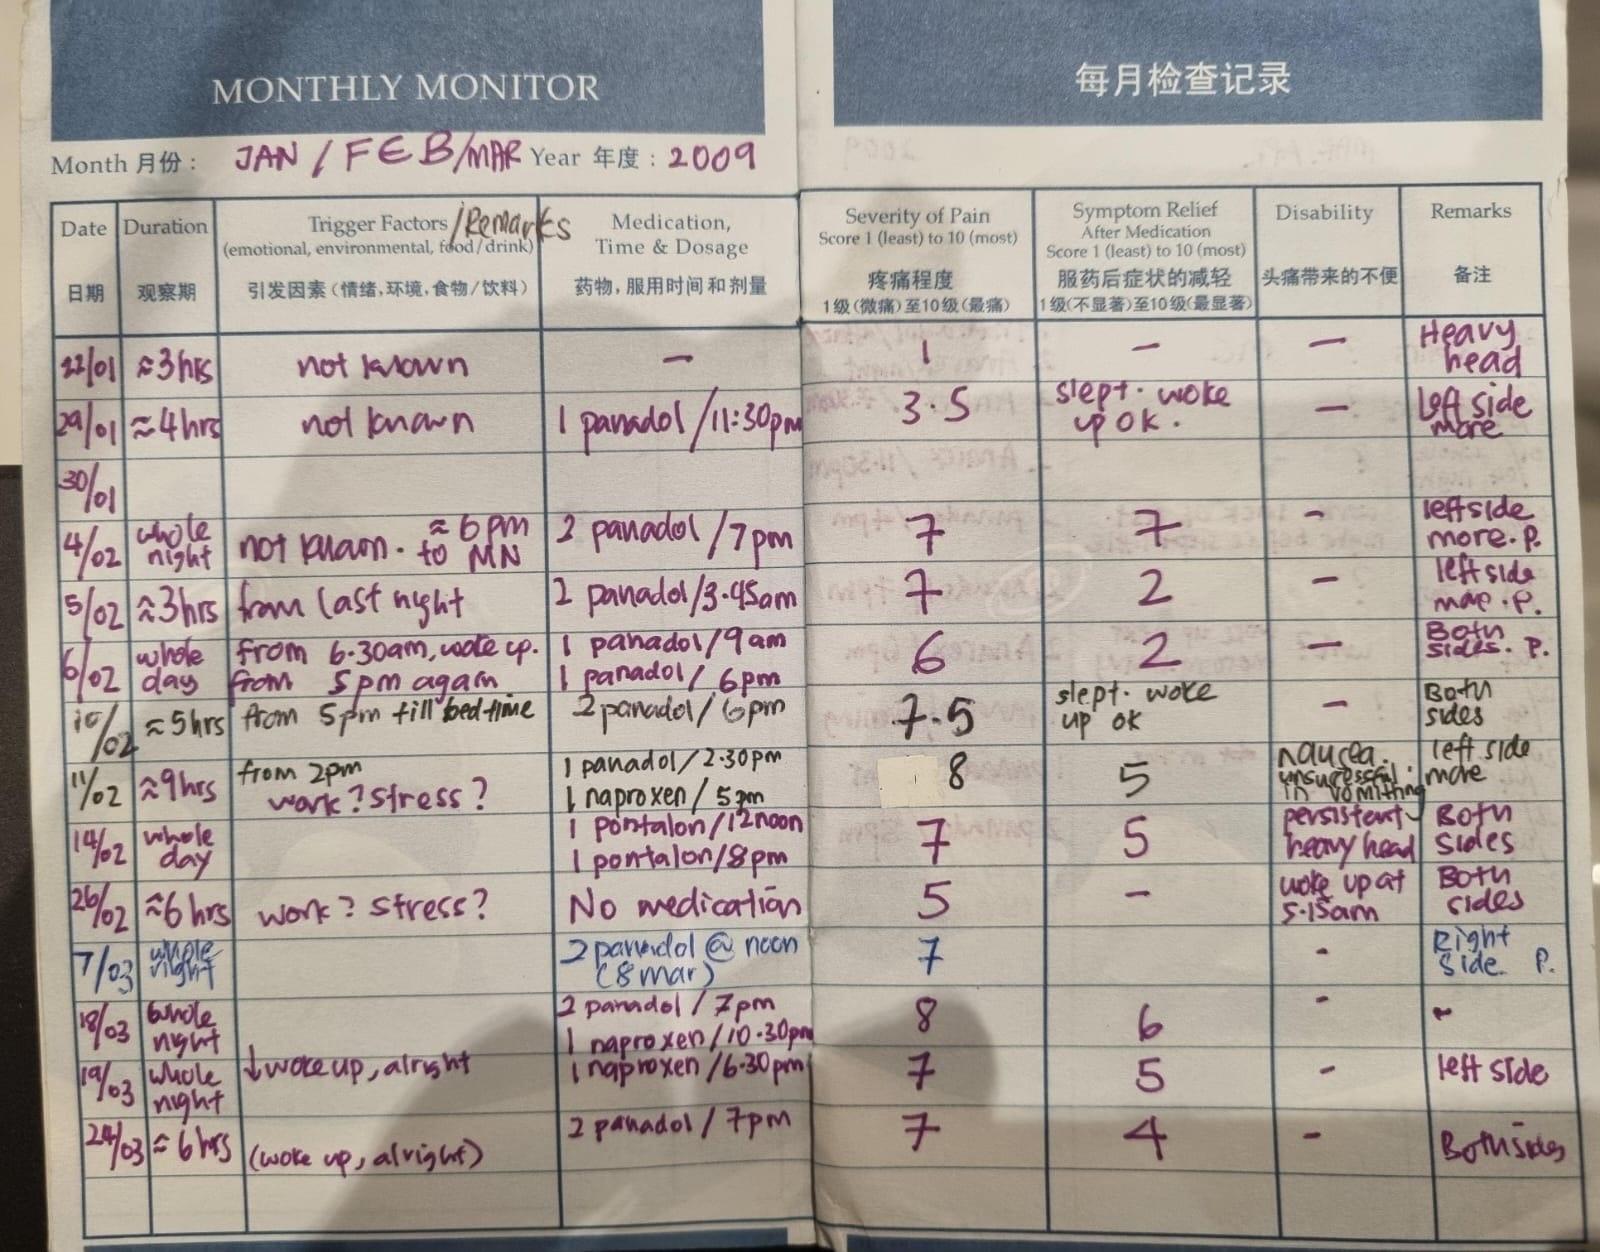 MONTHLY MONITOR
每月检查记录
Month 月份 : JAN / FEB/MAR Year 年度 : 2009
Date
日期
Duration
观察期
Trigger Factors /Remarks
(emotional, environmental, food/drink)
引发因素 (情绪,环境,食物/饮料)
Medication,
Time & Dosage
药物,服用时间和剂量
Severity of Pain
Score 1 (least) to 10 (most)
疼痛程度
1级(微痛)至10级(最痛)
Symptom Relief
After Medication
Score 1 (least) to 10 (most)
服药后症状的减轻
1级(不显著)至10级(最显著)
Disability
头痛带来的不便
Remarks
备注
22/01 ≈3hrs not known — 1 — — Heavy
head
29/01 ≈4hrs not known 1 panadol /11:30pm 3.5 slept. woke
up ok. — Left side
more
30/01
4/02 whole
night not known. ≈ 6pm
to MN 2 panadol /7pm 7 7 - leftside
more. P.
5/02 ≈3hrs from last night 2 panadol/3.45am 7 2 - left side
more. P.
6/02 whole
day from 6.30am, woke up.
from 5pm again 1 panadol/9am
1 panadol/ 6pm 6 2 - Both
sides. P.
10/02 ≈5hrs from 5pm till bedtime 2 panadol/ 6pm 7.5 slept. woke
up ok - Both
sides
11/02 ≈9hrs from 2pm
work? stress? 1 panadol/2.30pm
1 naproxen/ 5pm 8 5 nausea.
unsucessful
in vomithing left side
more
14/02 whole
day 1 pontalon/12noon
1 pontalon/8pm 7 5 persistent
heavy head Both
sides
26/02 ≈6 hrs work? stress? No medication 5 - woke up at
5.15am Both
sides
7/03 whole
night 2 panadol @ noon
(8 mar) 7 - Right
side P.
18/03 whole
night 2 panadol / 7pm
1 naproxen/10.30pm 8 6 - ~
19/03 whole
night ↓woke up, alright 1 naproxen /6.30pm 7 5 - left side
24/03 ≈ 6 hrs (woke up, alright) 2 panadol / 7pm 7 4 - Both sides